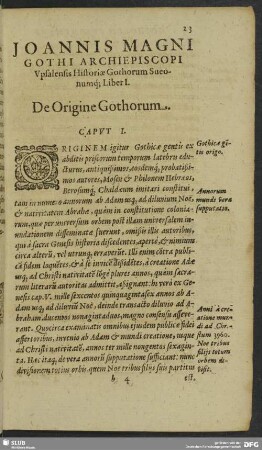 23
JOANNIS MAGNI
GOTHI ARCHIEPISCOPI
Vpsalensis Historiæ Gothorum Sueo-
numq́; Liber I.
De Origine Gothorum.
CAPVT I.
ORIGINEM igitur Gothicæ gentis ex
abditis priscorum temporum latebris edu-
cturus, antiquissimos, eosdemq́; probatissi-
mos autores, Mosen & Philonem Hebræos,
Berosumq́; Chaldæum imitari constitui,
tam in nomero annorum ab Adam vsq́; ad diluuium Noë,
& natiuitatem Abrahæ, quàm in constitutione colonia-
rum, quæ per vniuersum orbem post illam salem in-
undationem disseminatæ fuerunt, omissis illis autoribus,
qui à sacra Genesis historia discedentes, apertè, & nimium
circa alterũ, vel vtrunq́; errauerũt. Illi enim cõtra publi-
cã fidem loquũtur, & à se inuicẽ dissidẽtes, à creatione Adæ
vsq́; ad Christi natiuitatẽ lõgè plures annos, quàm sacra-
rum literarũ autoritas admittit, assignant: In verò ex Ge-
nesis cap. V. mille sexcentos quinquaginta sex annos ab A-
dam vsq́; ad diluuiũ Noë, deinde transacto diluuio ad A-
braham ducentos nonaginta duos, magno consensu asseue-
rant. Quocirca examinatis omnibus eiusdem publicæ fidei
assertoribus, inuenio ab Adam & mundi creatione, vsque
ad Christi natiuitatẽ, annos ter mille nongentos sexagin-
ta. Hæc itaq́; de vera annorũ supputatione sufficiant: nunc
ad diuisionem totius orbis, quem Noë tribus filijs suis partitus
b 4 est.
Gothicæ gẽ-
tis origo.
Annorum
mundi vera
supputatio.
Anni à cre-
atione mun-
di ad Chri-
stum 3960.
Noë tribus
filijs totum
orbem di-
uisit.
SLUB
DFG